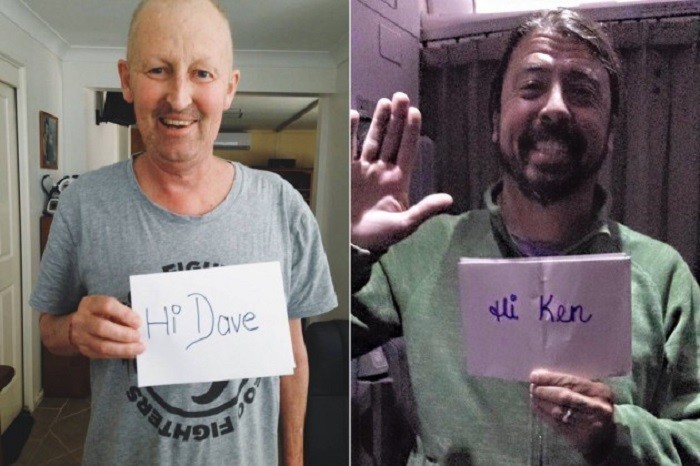 Hi Dave
FIGH
FOO FIGHTERS
Hi Ken